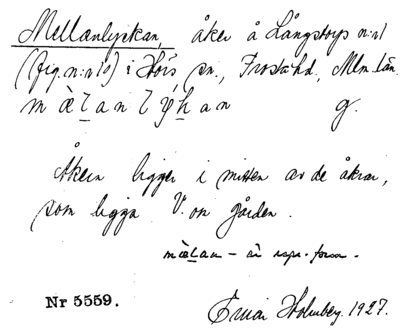 Mellanlyckan, åker å Långstorps n:r 1
(fig. n:r 10) i Hörs sn., Frosta hd., Mlm. län.
g.
Åkern ligger i mitten av de åkrar,
som ligga V. om gården.
mælan - är rspr.-form.
Nr 5559.
Holmberg. 1927.